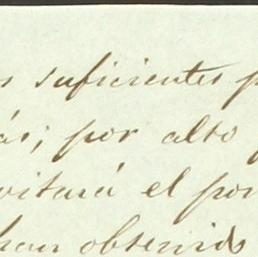 s suficientes p
ás; por alto
vitará el por
han obtenido